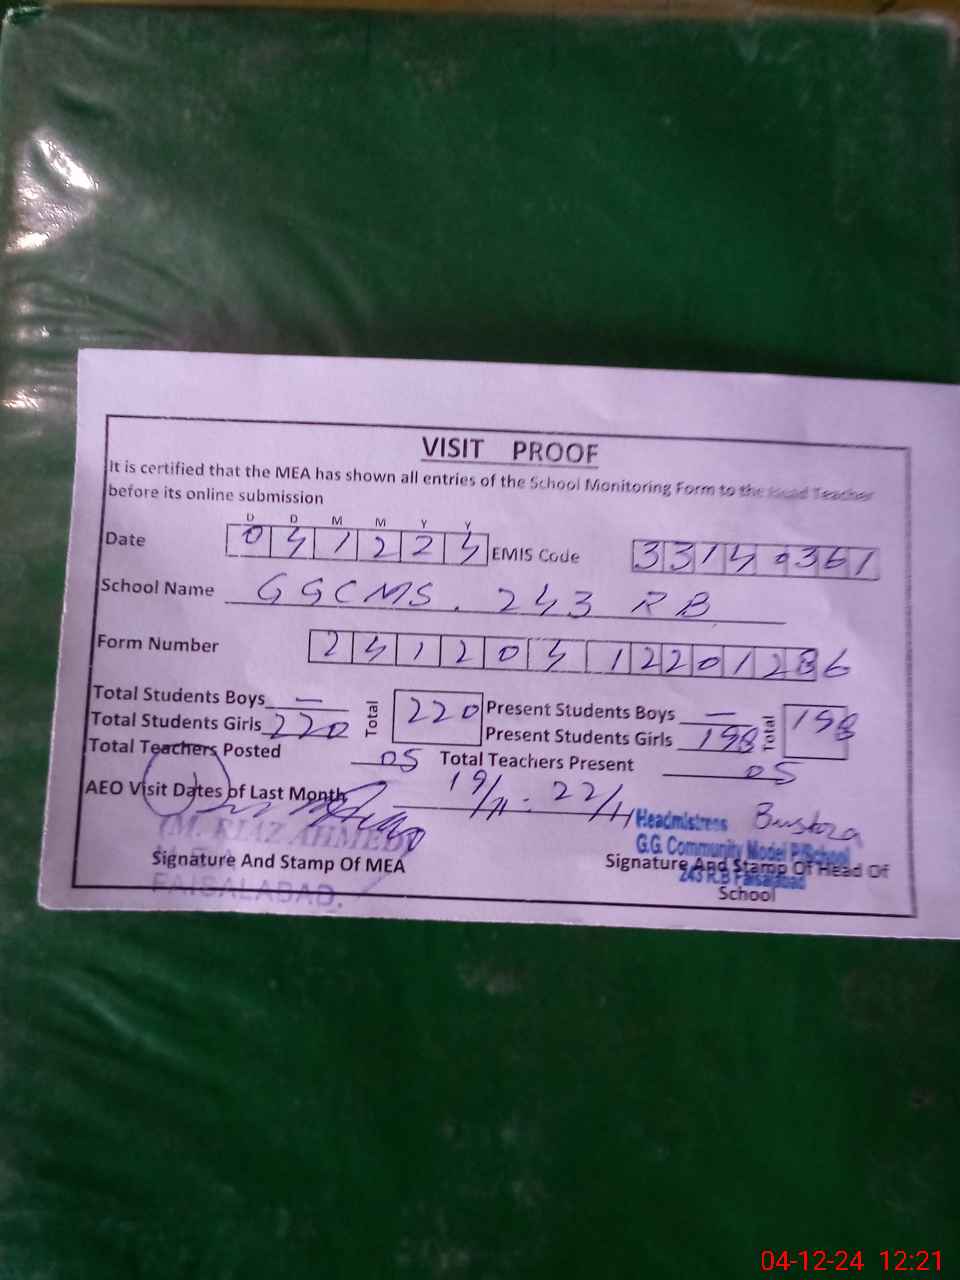 VISIT PROOF
It is certified that the MEA has shown all entries of the School Monitoring Form to the Head Teacher
before its online submission
D D M M Y Y
Date 041224 EMIS Code 33140361
School Name GGCMS. 243 RB
Form Number 24120412201286
Total Students Boys — Total 220 Present Students Boys — Total 198
Total Students Girls 220 Present Students Girls 198
Total Teachers Posted 05 Total Teachers Present 05
AEO Visit Dates of Last Month 19/11. 22/11
(M. RIAZ AHMED)
Headmistress
G.G. Community Model P/School
243 R.B Faisalabad
Signature And Stamp Of MEA Signature And Stamp Of Head Of
School
FAISALABAD.
04-12-24 12:21